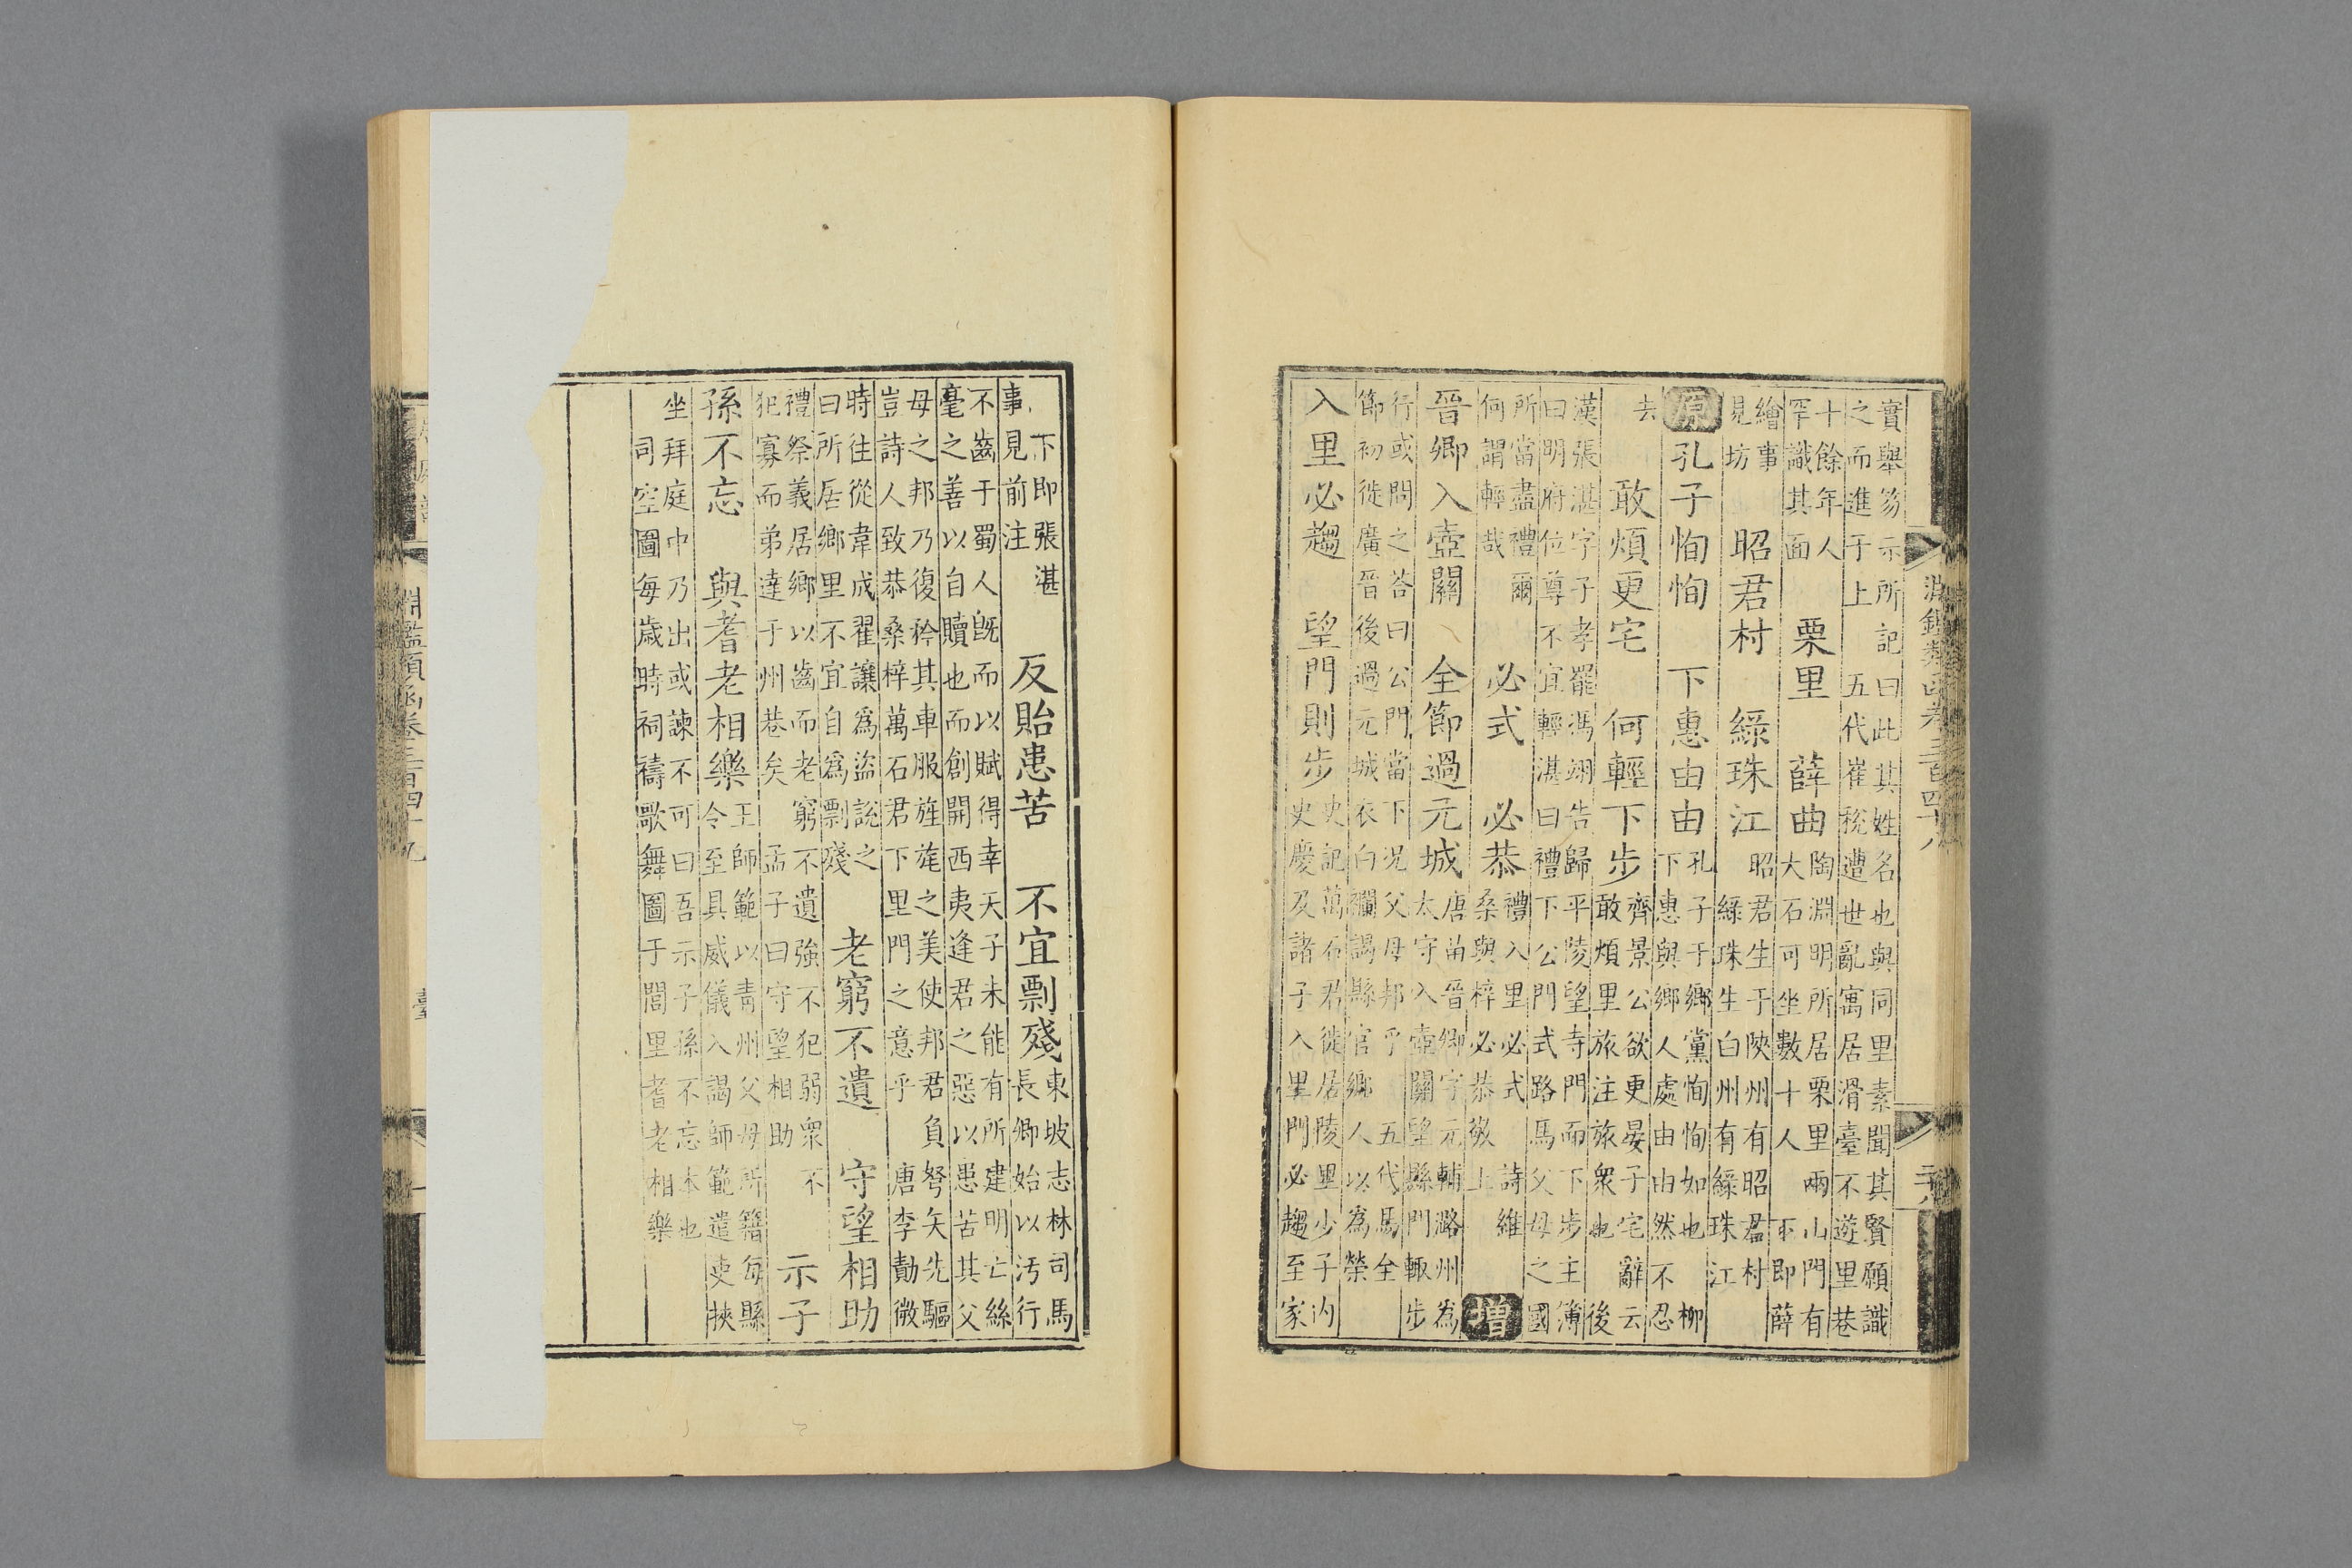 淵鑑類函卷三百四十八
二十八
實舉笏示所記曰此其姓名也與同里素聞其賢願識
之而進于上　五代崔梲遭世亂寓居滑臺不遊里巷
十餘年人
罕識其面
栗里　薛曲
陶淵明所居栗里兩山門有
大石可坐數十人　不即薛
繪事
見坊
昭君村　綠珠江
昭君生于陝州有昭君村
綠珠生白州有綠珠江
原　孔子恂恂　下惠由由
孔子于鄉黨恂恂如也　柳
下惠與鄉人處由由然不忍
去
敢煩更宅　何輕下步
齊景公欲更晏子宅辭云
敢煩里旅注旅衆也　後
漢張湛字子孝罷馮翊告歸平陵望寺門而下步主簿
曰明府位尊不宜輕湛曰禮下公門式路馬父母之國
所當盡禮爾
何謂輕哉
必式　必恭
禮入里必式　詩維
桑與梓必恭敬止
增
晉卿入壺關　全節過元城
唐苗晉卿字元輔潞州為
太守入壺關望縣門輙步
行或問之荅曰公門當下况父母邦乎　五代馬全
節初徙廣晉後過元城衣白襴謁縣官鄉人以為榮
入里必趨　望門則步
史記萬石君徙居陵里少子內
史慶及諸子入里門必趨至家
下即張湛
事見前注
反貽患苦　不宜剽殘
東坡志林司馬
長卿始以汚行
不齒于蜀人旣而以賦得幸天子未能有所建明亡絲
毫之善以自贖也而創開西夷逢君之惡以患苦其父
母之邦乃復矜其車服旌旄之美使邦君負弩矢先驅
豈詩人致恭桑梓萬石君下里門之意乎　唐李勣微
時往從韋成翟讓為盜說之
曰所居鄉里不宜自為剽殘
老窮不遺　守望相助
禮祭義居鄉以齒而老窮不遺強不犯弱衆不
犯寡而弟達于州巷矣　孟子曰守望相助
示子
孫不忘　與耆老相樂
王師範以青州父母所籍每縣
令至具威儀入謁師範遣吏挾
坐拜庭中乃出或諫不可曰吾示子孫不忘本也
司空圖每歲時祠禱歌舞圖于閭里耆老相樂
淵鑑類函卷三百四十九